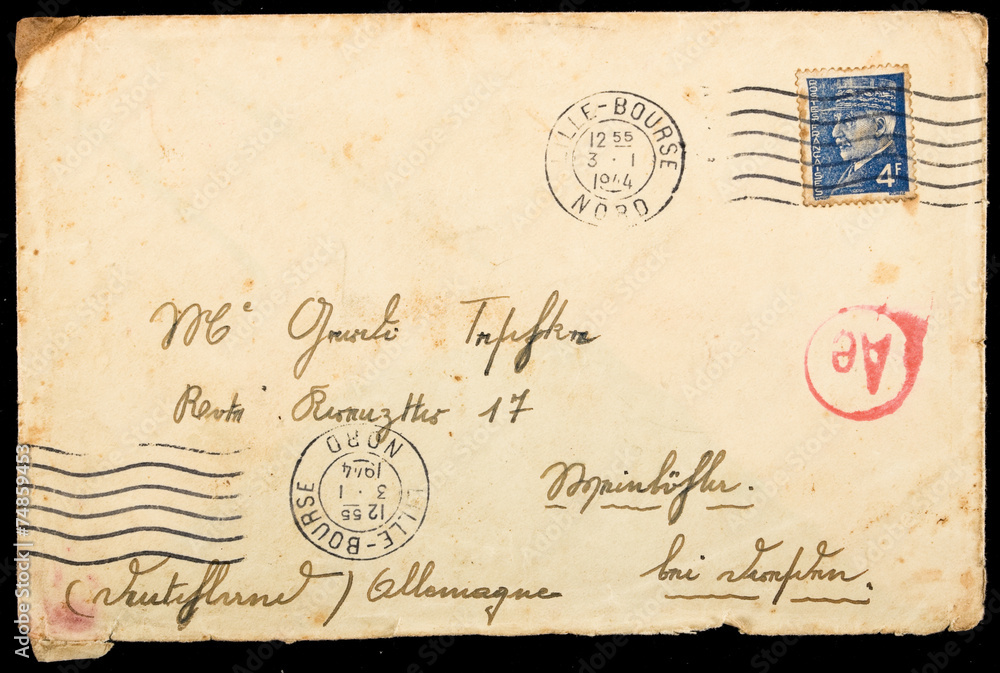 LILLE-BOURSE
12 55
3 · 1
1944
NORD
POSTES FRANÇAISES
4F
Ae
17
LILLE-BOURSE
12 55
3 · 1
1944
NORD
Weinböhla.
bei Dresden.
(Deutschland) Allemagne
Adobe Stock | #74859453